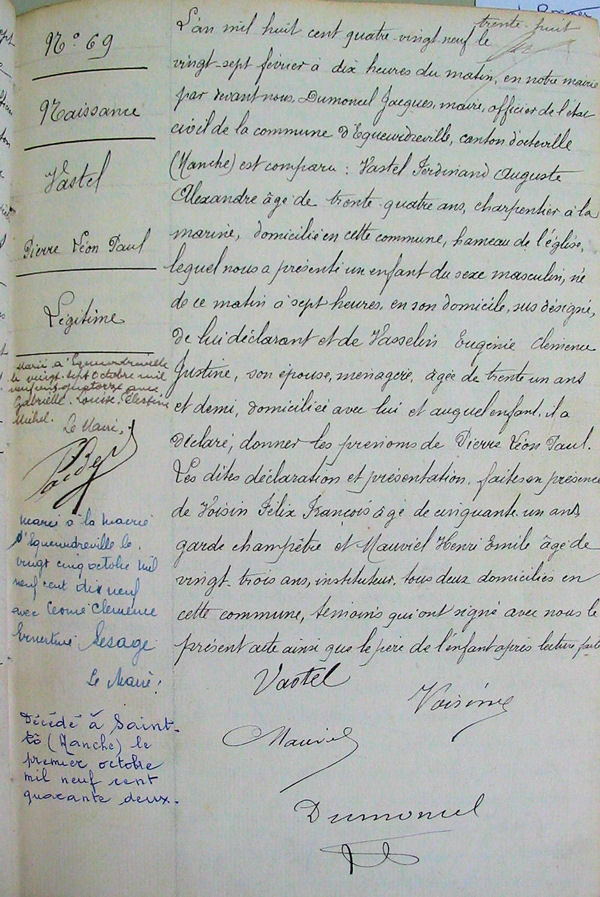 trente-huit
N° 69
Naissance
Vastel
Pierre Léon Paul
Légitime
Marié à Equeurdreville
le vingt sept octobre mil
neuf cent quatorze avec
Gabrielle Louise Clestine
Michel.
Le Maire,
mariés à la mairie
d'Equeurdreville le
vingt cinq octobre mil
neuf cent dix neuf
avec Léonie Clémence
Ernestine Lesage
Le Maire:
Décédé à Saint-
Lô (Manche) le
premier octobre
mil neuf cent
quarante deux.
L'an mil huit cent quatre-vingt neuf le
vingt-sept février à dix heures du matin, en notre mairie
par devant nous, Dumoncel Jacques, maire, officier de l'état
civil de la commune d'Equeurdreville, canton d'octeville
(Manche) est comparu : Vastel Ferdinand Auguste
Alexandre âgé de trente-quatre ans, charpentier à la
marine, domicilié en cette commune, hameau de l'église,
lequel nous a présenté un enfant du sexe masculin, né
de ce matin à sept heures, en son domicile, sus désigné,
de lui déclarant et de Vasselin Eugénie Clemence
Justine, son épouse, ménagère, âgée de trente un ans
et demi, domiciliée avec lui et auquel enfant, il a
déclaré, donner les prénoms de Pierre Léon Paul.
Les dites déclaration et présentation, faites en présence
de Voisin Félix François âgé de cinquante un ans,
garde champêtre et Mauviel Henri Emile âgé de
vingt-trois ans, instituteur, tous deux domiciliés en
cette commune, témoins qui ont signé avec nous le
présent acte ainsi que le père de l'enfant après lecture faite
Vastel
Voisin
Mauviel
Dumoncel